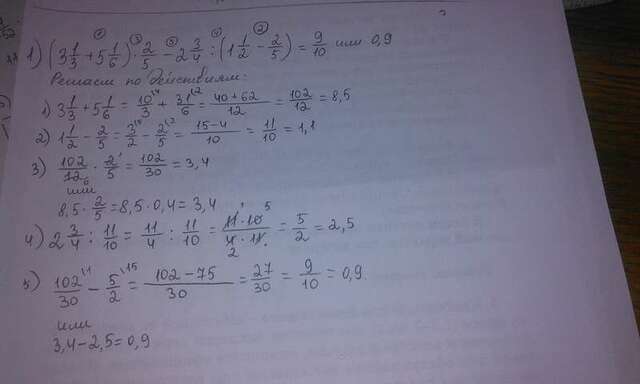 1) (3 1/3 + 5 1/6) · 2/5 − 2 3/4 : (1 1/2 − 2/5) = 9/10 или 0,9
Решаем по действиям:
1) 3 1/3 + 5 1/6 = 10/3 + 31/6 = (40+62)/12 = 102/12 = 8,5
2) 1 1/2 − 2/5 = 3/2 − 2/5 = (15−4)/10 = 11/10 = 1,1
3) 102/12 · 2/5 = 102/30 = 3,4
или
8,5 · 2/5 = 8,5 · 0,4 = 3,4
4) 2 3/4 : 11/10 = 11/4 : 11/10 = (11·10)/(4·11) = 5/2 = 2,5
5) 102/30 − 5/2 = (102−75)/30 = 27/30 = 9/10 = 0,9
или
3,4−2,5=0,9